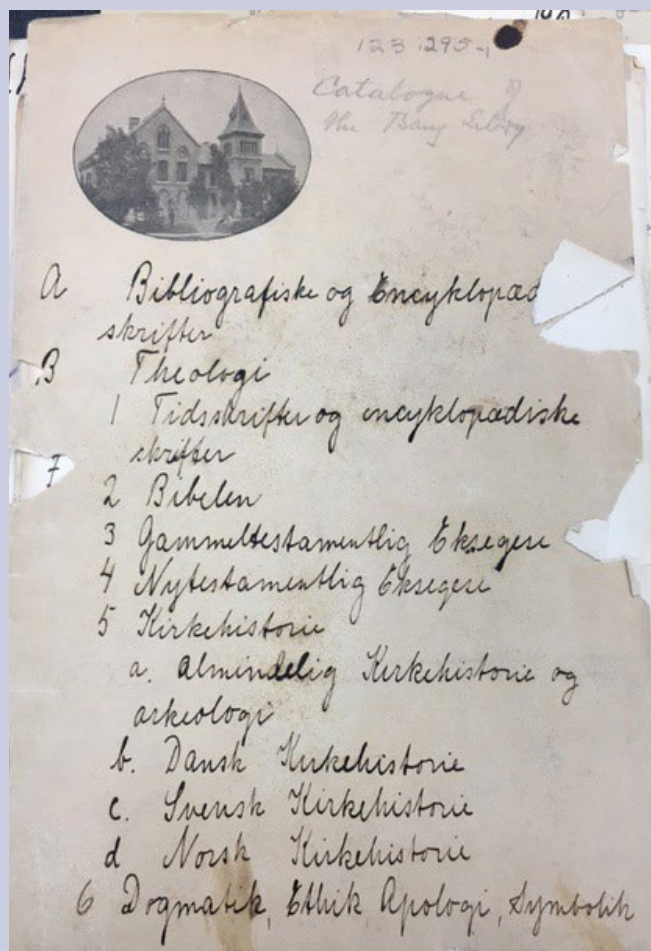 123:295-1
Catalogue of
the Bang Library
A Bibliografiske og Encyklopæd
skrifter
B Theologi
1 Tidsskrifter og encyklopædiske
skrifter
7
2 Bibelen
3 Gammeltestamentlig Eksegese
4 Nytestamentlig Eksegese
5 Kirkehistorie
a. almindelig Kirkehistorie og
arkeologi
b. Dansk Kirkehistorie
c. Svensk Kirkehistorie
d Norsk Kirkehistorie
6 Dogmatik, Ethik, Apologi, Symbolik